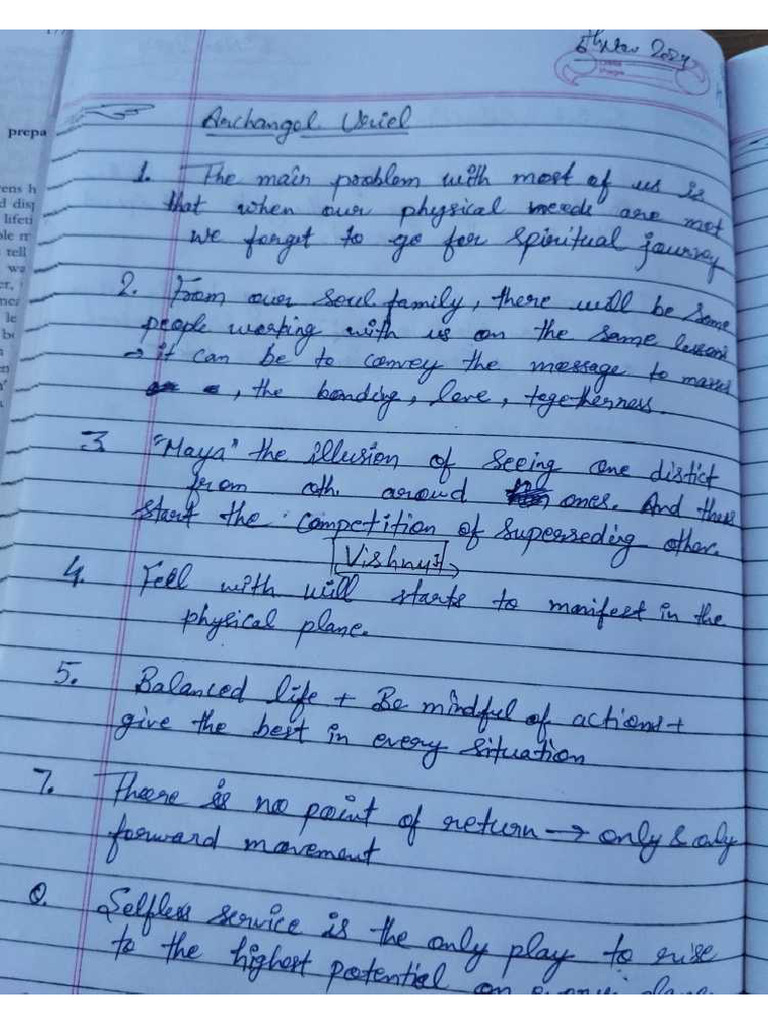 prepa
6th Nov 2024
Archangel Uriel
1. The main problem with most of us is
that when our physical needs are met
we forget to go for spiritual journey
2. From our soul family, there will be some
people working with us on the same lessons
→ it can be to convey the message to masses
, the bonding, love, togetherness.
3 "Maya" the illusion of seeing one distict
from oth. around ones. And thus
start the competition of superseding other.
Vishnu
4. Feel with will starts to manifest in the
physical plane.
5. Balanced life + Be mindful of actions +
give the best in every situation
7. There is no point of return → only & only
forward movement
Selfless service is the only play to rise
to the highest potential on